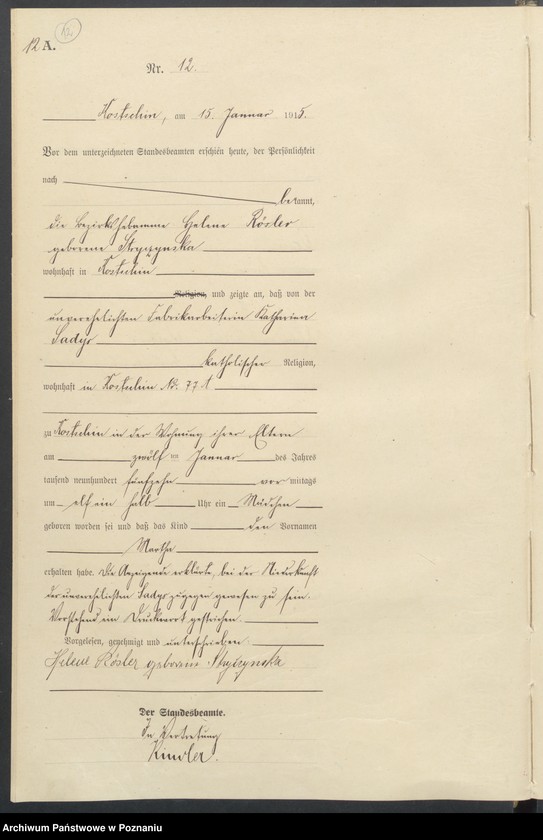 12 A. 12.
Nr. 12.
Kostschin, am 15. Januar 1915.
Vor dem unterzeichneten Standesbeamten erschien heute, der Persönlichkeit
nach
bekannt,
die Bezirkshebamme Helene Rösler
geborene Stryzynska
wohnhaft in Kostschin
Religion, und zeigte an, daß von der
unverehelichten Fabrikarbeiterin Katharina
Sadys
katholischer Religion,
wohnhaft in Kostschin Nr. 77
zu Kostschin in der Wohnung ihrer Eltern
am zwölf ten Januar des Jahres
tausend neunhundert fünfzehn vor mittags
um elf ein halb Uhr ein Mädchen
geboren worden sei und daß das Kind den Vornamen
Martha
erhalten habe. Die Anzeigende erklärte, bei der Niederkunft
der unverehelichten Sadys zugegen gewesen zu sein.
Vorstehend ein Druckwort gestrichen.
Vorgelesen, genehmigt und unterschrieben
Helene Rösler geborene Stryzynska
Der Standesbeamte.
In Vertretung
Kindler.
Archiwum Państwowe w Poznaniu